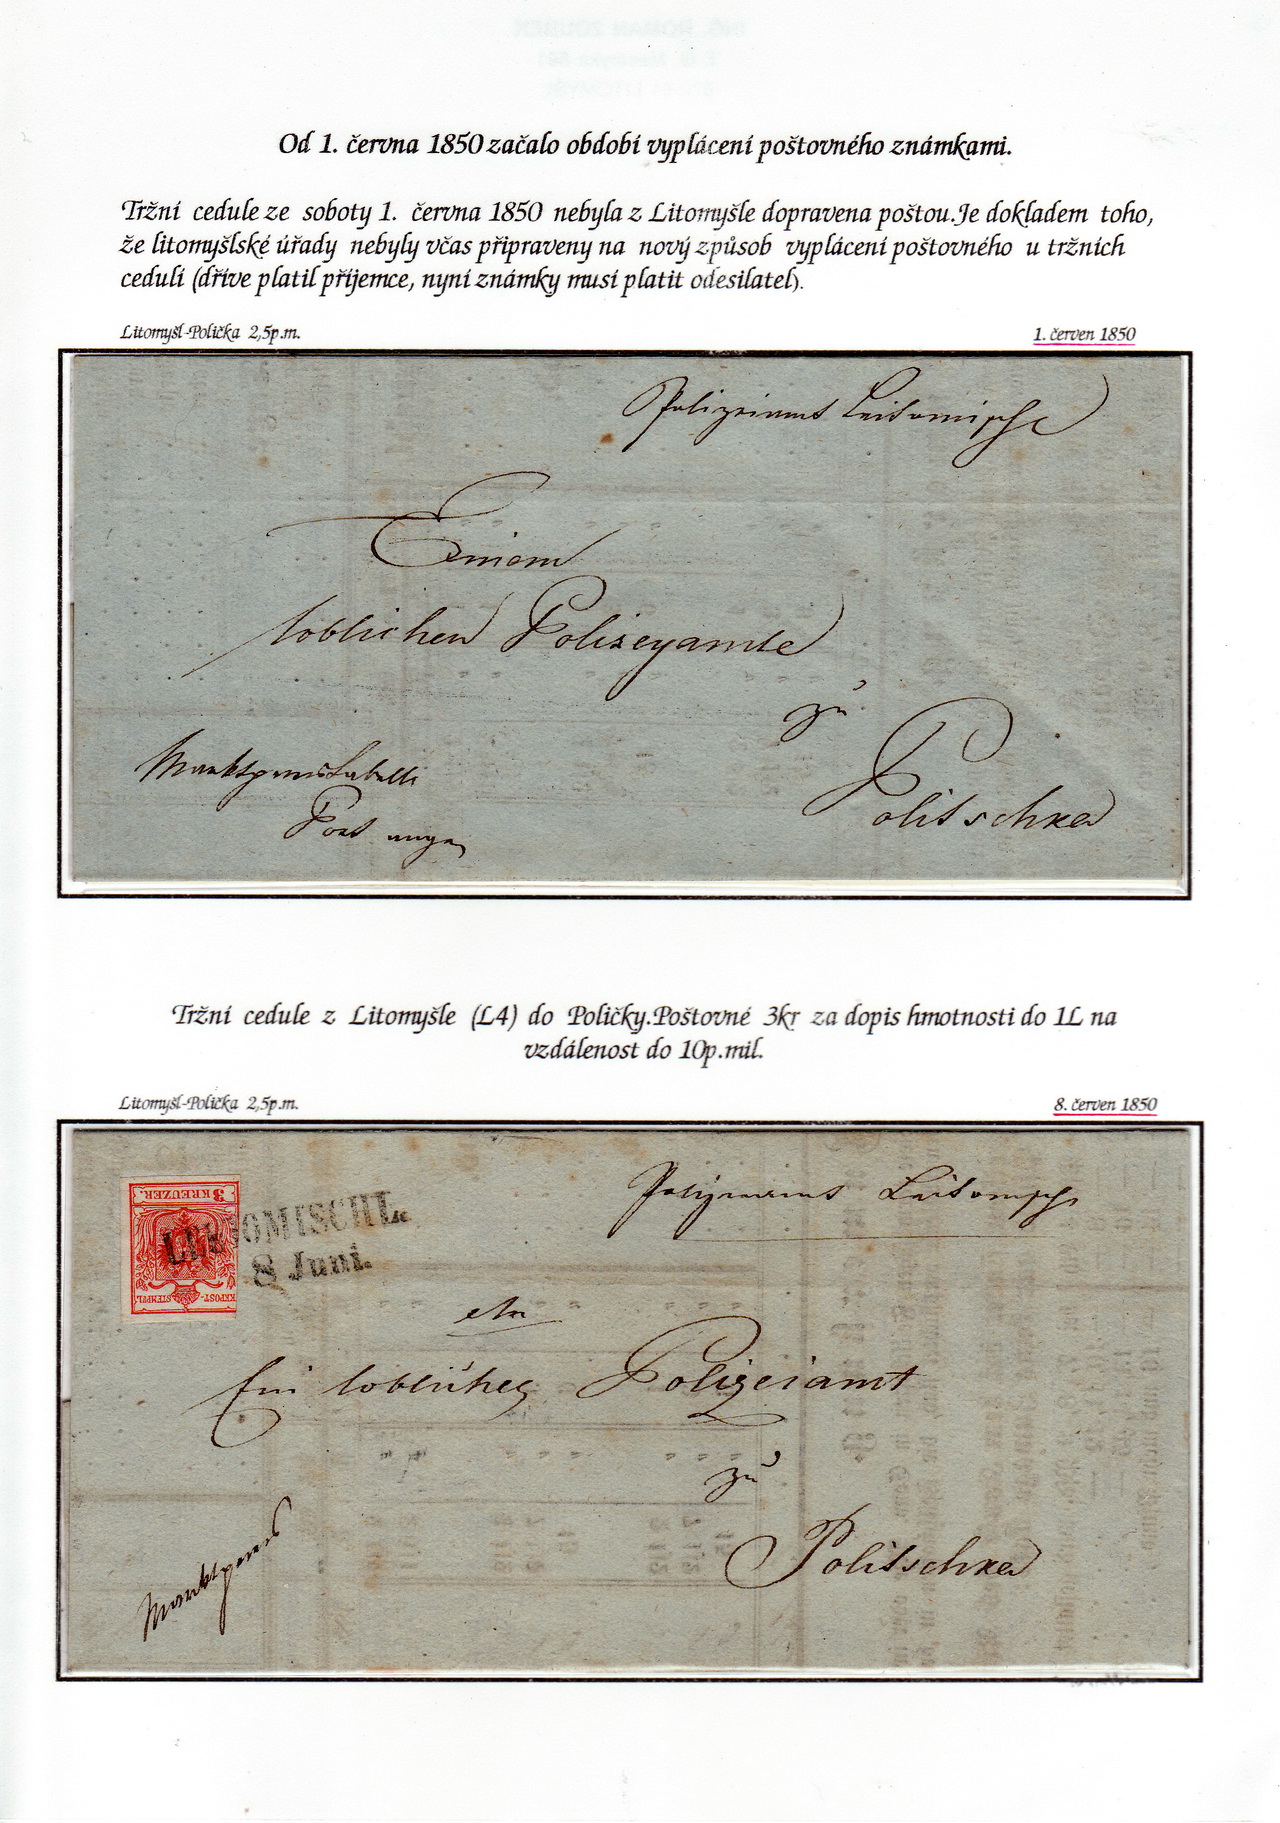 Od 1. června 1850 začalo období vyplácení poštovného známkami.
Tržní cedule ze soboty 1. června 1850 nebyla z Litomyšle dopravena poštou. Je dokladem toho,
že litomyšlské úřady nebyly včas připraveny na nový způsob vyplácení poštovného u tržních
cedulí (dříve platil příjemce, nyní známky musí platit odesilatel).
Litomyšl-Polička 2,5p.m.
1. červen 1850
Polizeiamt Leitomischl
Einem
loblichen Polizeyamte
zu
Politschka
Marktpreistabelle
Port
Tržní cedule z Litomyšle (L4) do Poličky. Poštovné 3kr za dopis hmotnosti do 1L na
vzdálenost do 10p.mil.
Litomyšl-Polička 2,5p.m.
8. červen 1850
3 KREUZER.
KKPOST-STEMPEL
LEITOMISCHL.
8 Juni.
Polizeiamt Leitomischl
Ein lobliches Polizeiamt
zu
Politschka
Marktpreis